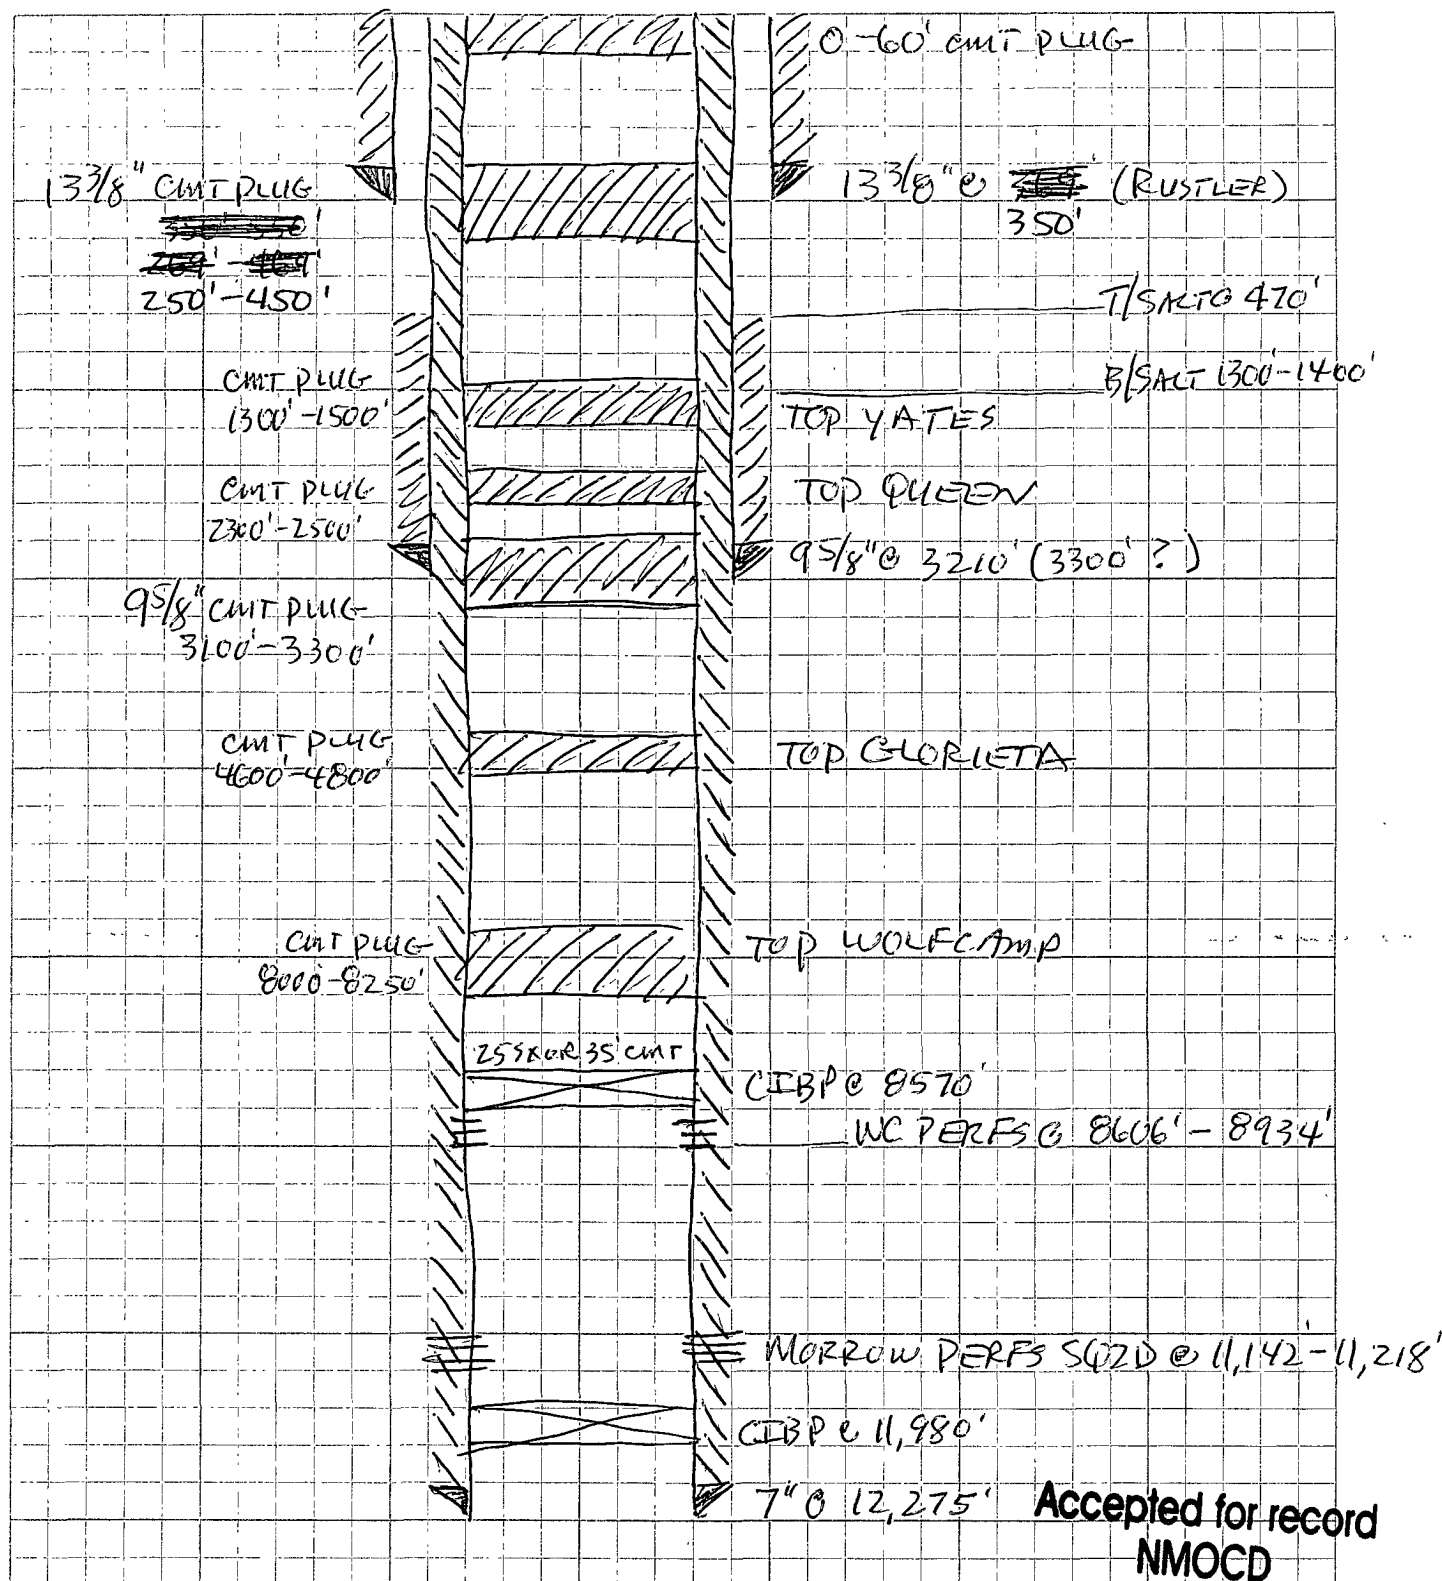 0-60' CMT PLUG
13 3/8" CMT PLUG
250'-450'
13 3/8" @ (RUSTLER)
350'
T/SALT @ 470'
B/SALT 1300'-1400'
CMT PLUG
1300'-1500'
TOP YATES
CMT PLUG
2300'-2500'
TOP QUEEN
9 5/8" @ 3210' (3300' ?)
9 5/8" CMT PLUG
3100'-3300'
CMT PLUG
4600'-4800'
TOP GLORIETA
CMT PLUG
8000-8250'
TOP WOLFCAMP
25 SX OR 35' CMT
CIBP @ 8570'
WC PERFS @ 8606' - 8934'
MORROW PERFS SQZD @ 11,142'-11,218'
CIBP @ 11,980'
7" @ 12,275'
Accepted for record
NMOCD